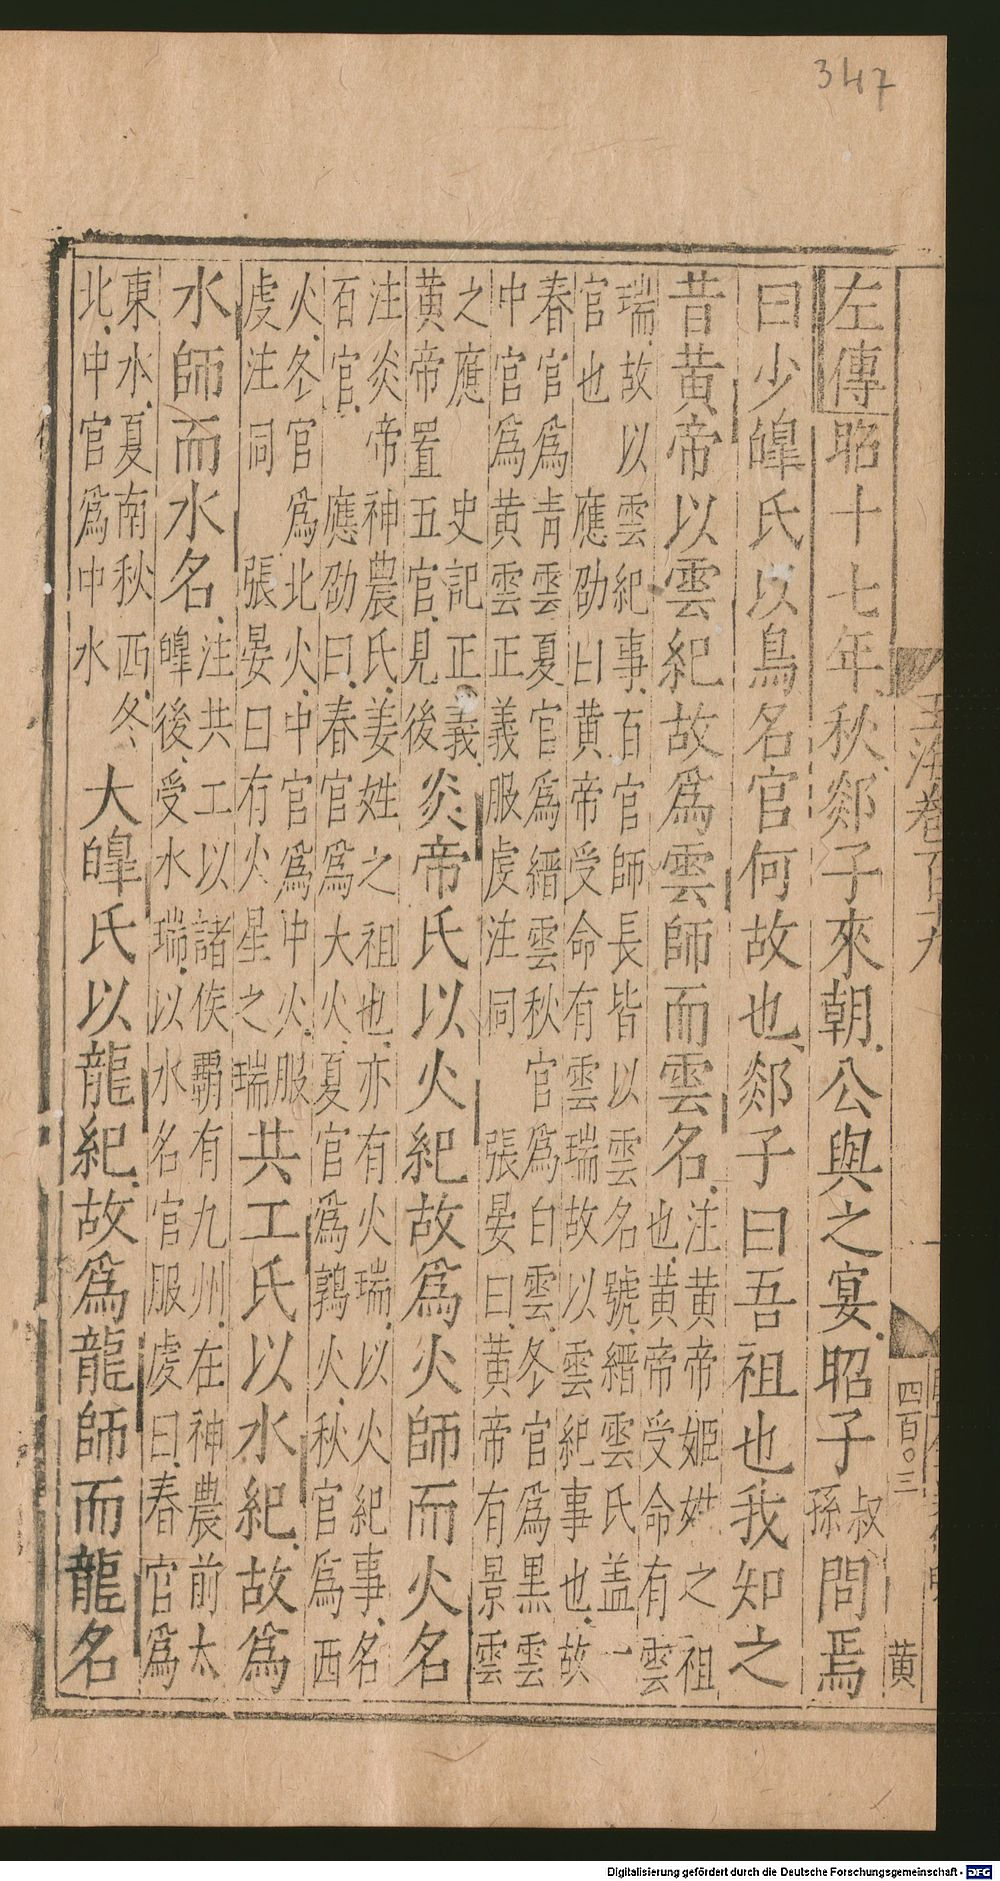 347
玉海卷百十九 一 四百〇三 黄
左傳昭十七年秋郯子來朝公與之宴昭子叔孫問焉
曰少皥氏以鳥名官何故也郯子曰吾祖也我知之
昔黄帝以雲紀故爲雲師而雲名注黄帝姬姓之祖
也黄帝受命有雲
瑞故以雲紀事百官師長皆以雲名號縉雲氏盖一
官也 應劭曰黄帝受命有雲瑞故以雲紀事也故
春官爲青雲夏官爲縉雲秋官爲白雲冬官爲黒雲
中官爲黄雲正義服䖍注同 張晏曰黄帝有景雲
之應 史記正義
黄帝置五官見後
炎帝氏以火紀故爲火師而火名
注炎帝神農氏姜姓之祖也亦有火瑞以火紀事名
百官 應劭曰春官爲大火夏官爲鶉火秋官爲西
火冬官爲北火中官爲中火服
䖍注同 張晏曰有火星之瑞
共工氏以水紀故爲
水師而水名注共工以諸侯覇有九州在神農前太
皥後受水瑞以水名官服䖍曰春官爲
東水夏南秋西冬
北中官爲中水
大皥氏以龍紀故爲龍師而龍名
Digitalisierung gefördert durch die Deutsche Forschungsgemeinschaft - DFG